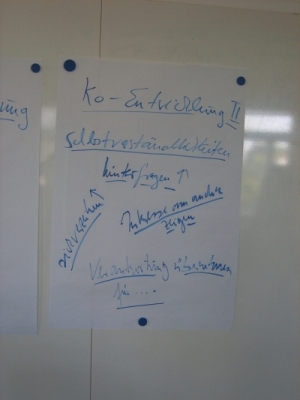 ung
Ko-Entwicklung II
Selbstverständlichkeiten
hinterfragen ↑
Interesse am andern
zeigen
Verantwortung übernehmen
für ....